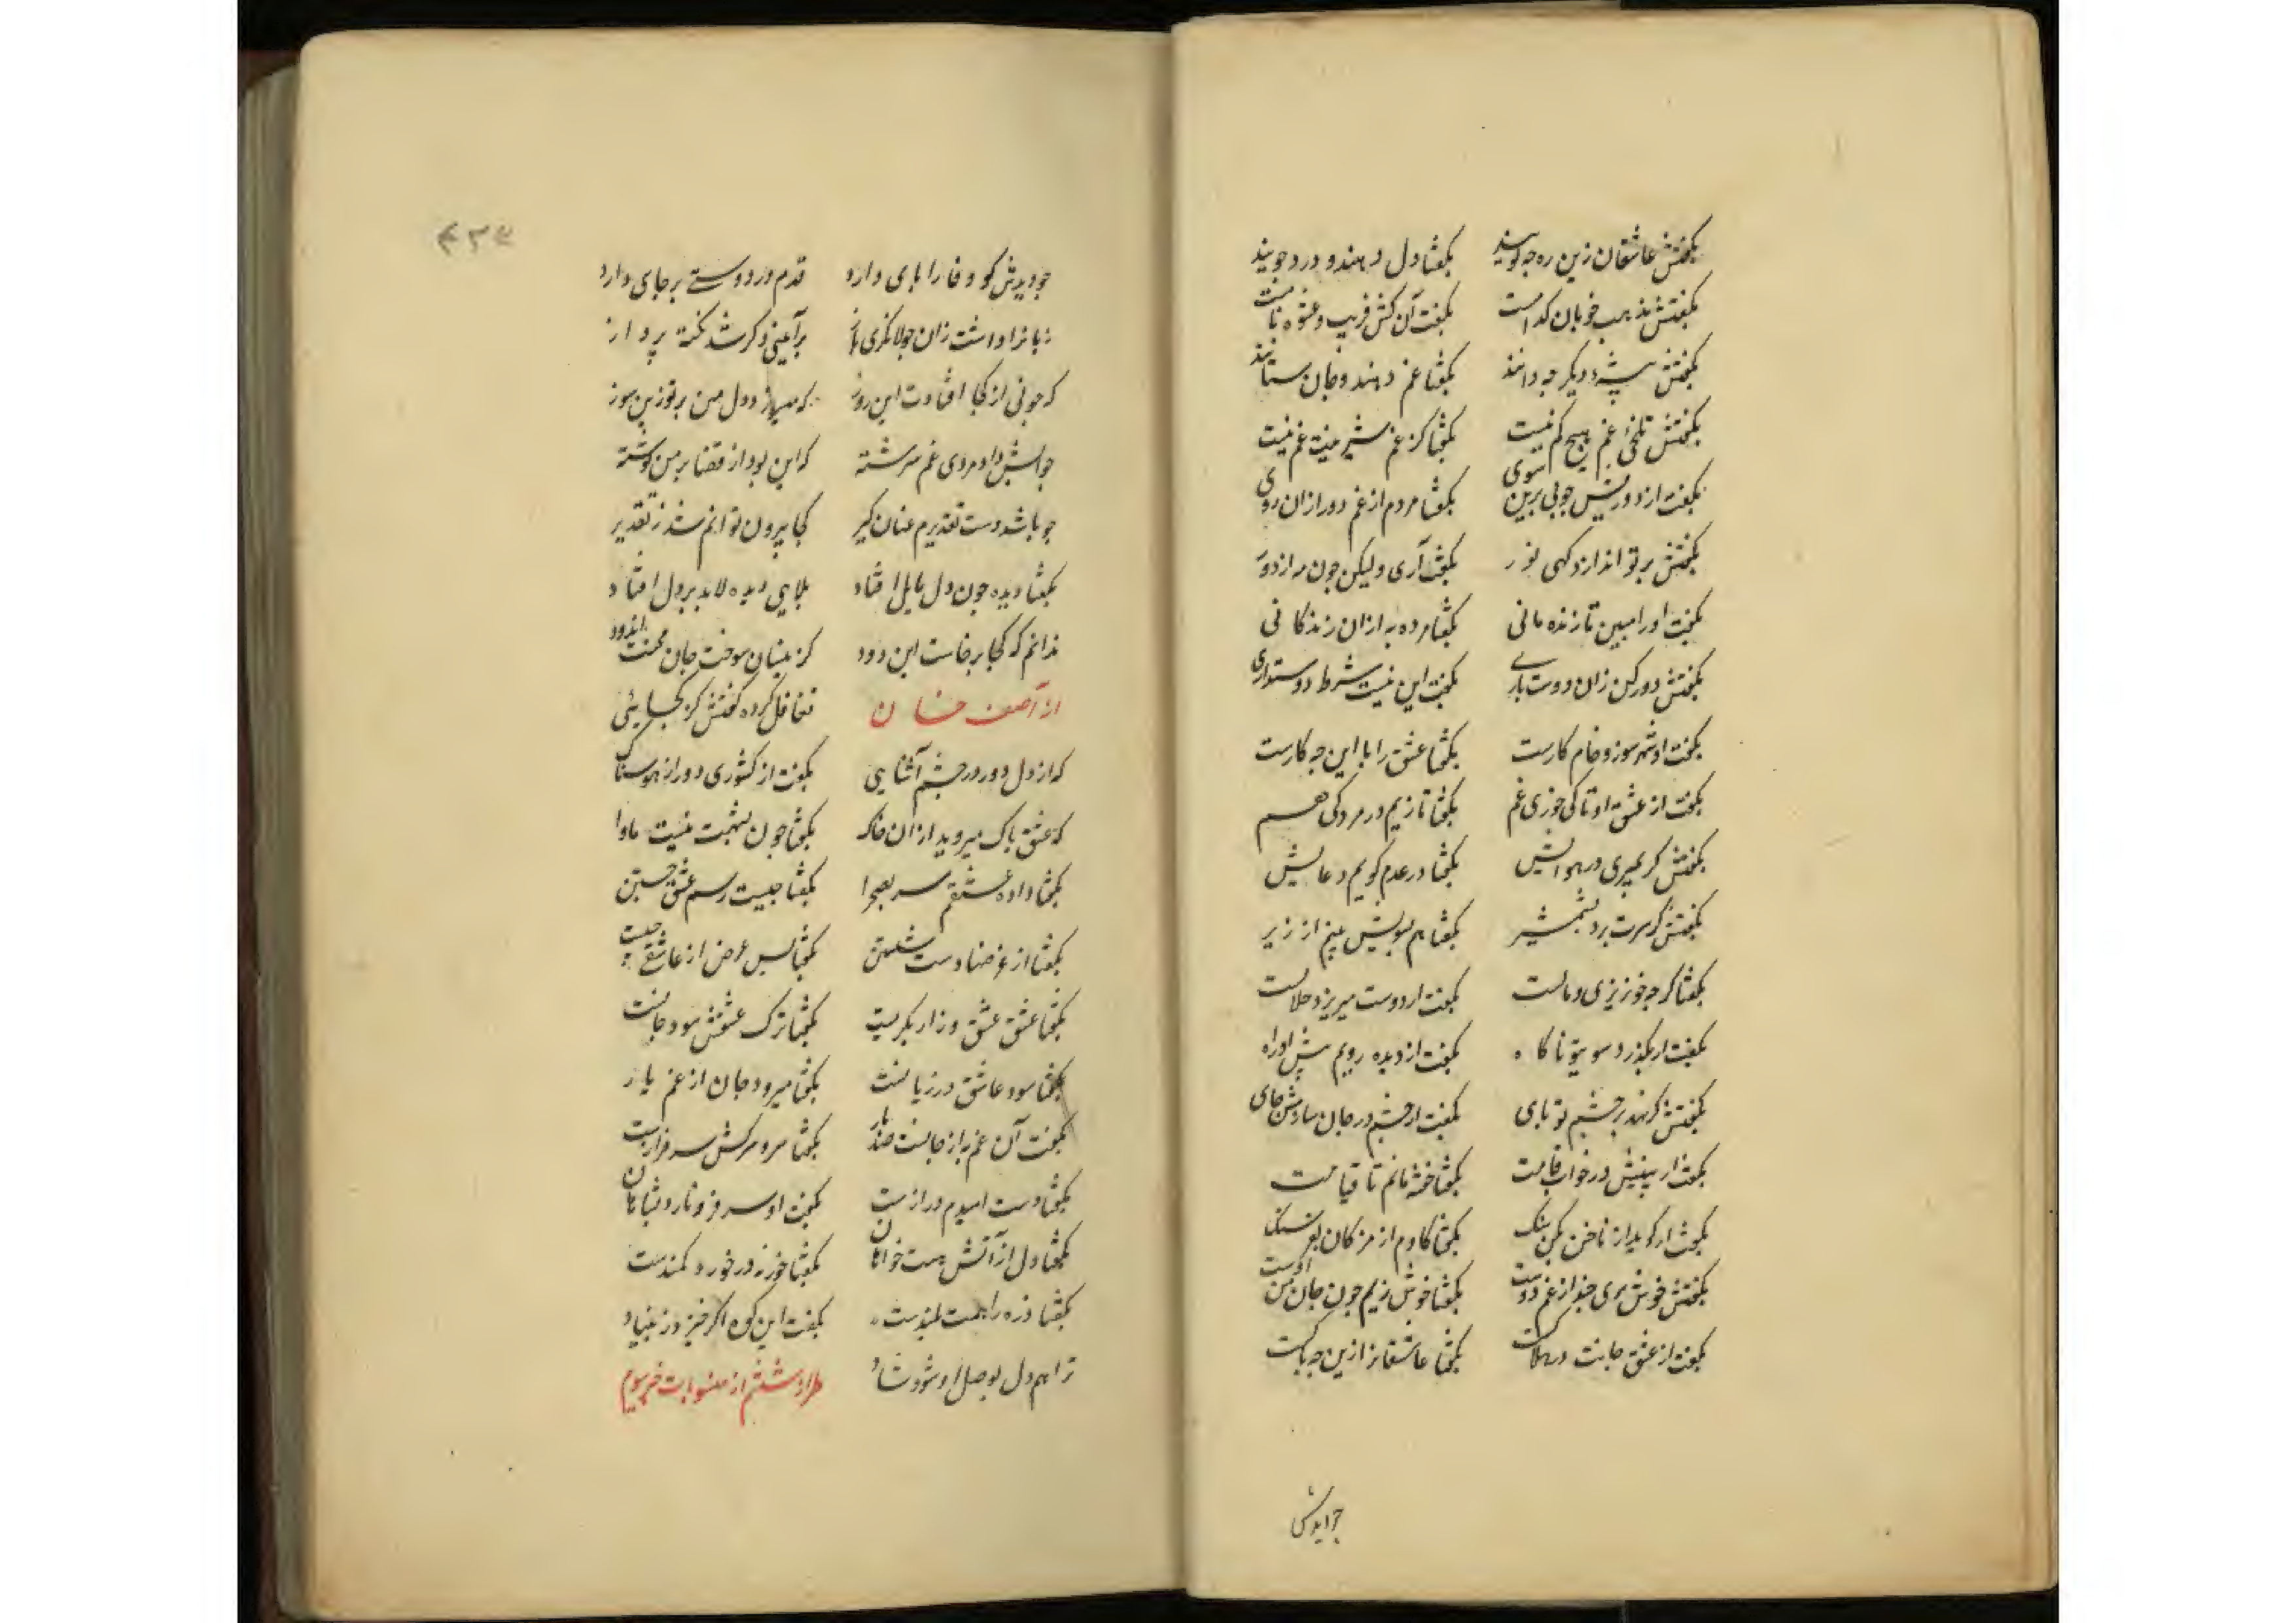 بگفتش عاشقان زین ره چه گویند بگفتا دل دهند و درد جویند
بگفتش مذهب خوبان کدامست بگفت آن کش فریب و عشوه نامست
بگفتش پیشه دیگر چه دانند بگفتا غم دهند و جان ستانند
بگفتش تلخی غم هیچ کم نیست بگفتا کز غم شیرینت غم نیست
بگفت از دوریش جونی برین سوی بگفتا مردم از غم دور ازان روی
بگفتش بر تو اندازد کهی نور بگفت آری ولیکن چون مه از دور
بگفت اورا مبین تا زنده مانی بگفتا مرده به ازان زندگانی
بگفتش دور کن زان دوست باری بگفت این نیست شرط دوستداری
بگفت او شهرسوز و خام کارست بگفتا عشق را با این چه کارست
بگفت از عشق او تا کی خوری غم بگفتا تا زیم در مردکی هم
بگفتش گر بمیری در هوایش بگفتا در عدم گویم دعایش
بگفتش گر سرت برد بشمشیر بگفتا هم بسویش بینم از زیر
بگفتا گرچه خونریزی وبالست بگفت ار دوست میریزد حلالست
بگفت ار بگذرد سویت ناگاه بگفت از دیده روبم پیش او راه
بگفتش گر نهد بر چشم تو پای بگفت از چشم در جان سازمش جای
بگفت ار بینیش در خواب قامت بگفتا خفته مانم تا قیامت
بگفت ار گوید از ناخن بکن سنگ بگفتا کاوم از مژگان بفرسنگ
بگفتش خوش بزی چند از غم دوست بگفتا خوش زیم چون جان من اوست
بگفت از عشق جانت در هلاکست بگفتا عاشقانرا زین چه باکست
چو دیدش
چو دیدش کو وفا را پای دارد قدم در دوستی بر جای دارد
زبانرا داشت زان جولانگری باز برآیین دگر شد نکته پرداز
که چونی از کجا افتادت این روز که میسازد دل من بر تو زین سوز
جوابش داد مرد غم سرشته که این بود از قضا بر من نوشته
چو باشد دست تقدیرم عنان گیر کجا بیرون توانم شد ز تقدیر
بگفتا دیده چون دل مایل افتاد بلای دیده لابد بر دل افتاد
ندانم کز کجا برخاست این دود کزینسان سوخت جان محنت اندود
از آصف خان تغافل کرده گفتش کز کجایئی
که از دل دور و در چشم آشنایی بگفت از کشوری دور از هوسناک
که عشق پاک میروید ازان خاک بگفتا چون بشهرت نیست ماوا
بگفتا داده عشقم سر بصحرا بگفتا چیست رسم عشق جستن
بگفتا از غرضها دست شستن بگفتا پس غرض از عاشقی چیست
بگفتا عشق عشق و زار بگریست بگفتا ترک عشقش سود جانست
بگفتا سود عاشق در زیانست بگفتا میرود جان از غم یار
بگفت آن غم به از جانست صد بار بگفتا سرو سرکش سرفرازست
بگفتا دست امیدم درازست بگفت او سر فرو نارد بشاهان
بگفتا دل از آتش هست خواهان بگفتا خور نه در خورد کمندست
بگفتا ذره را همت بلندست بگفت این کوه اگر خیزد ز بنیاد
ترا هم دل بوصل او شود شاد طراز ششم از منسوبات خسروم